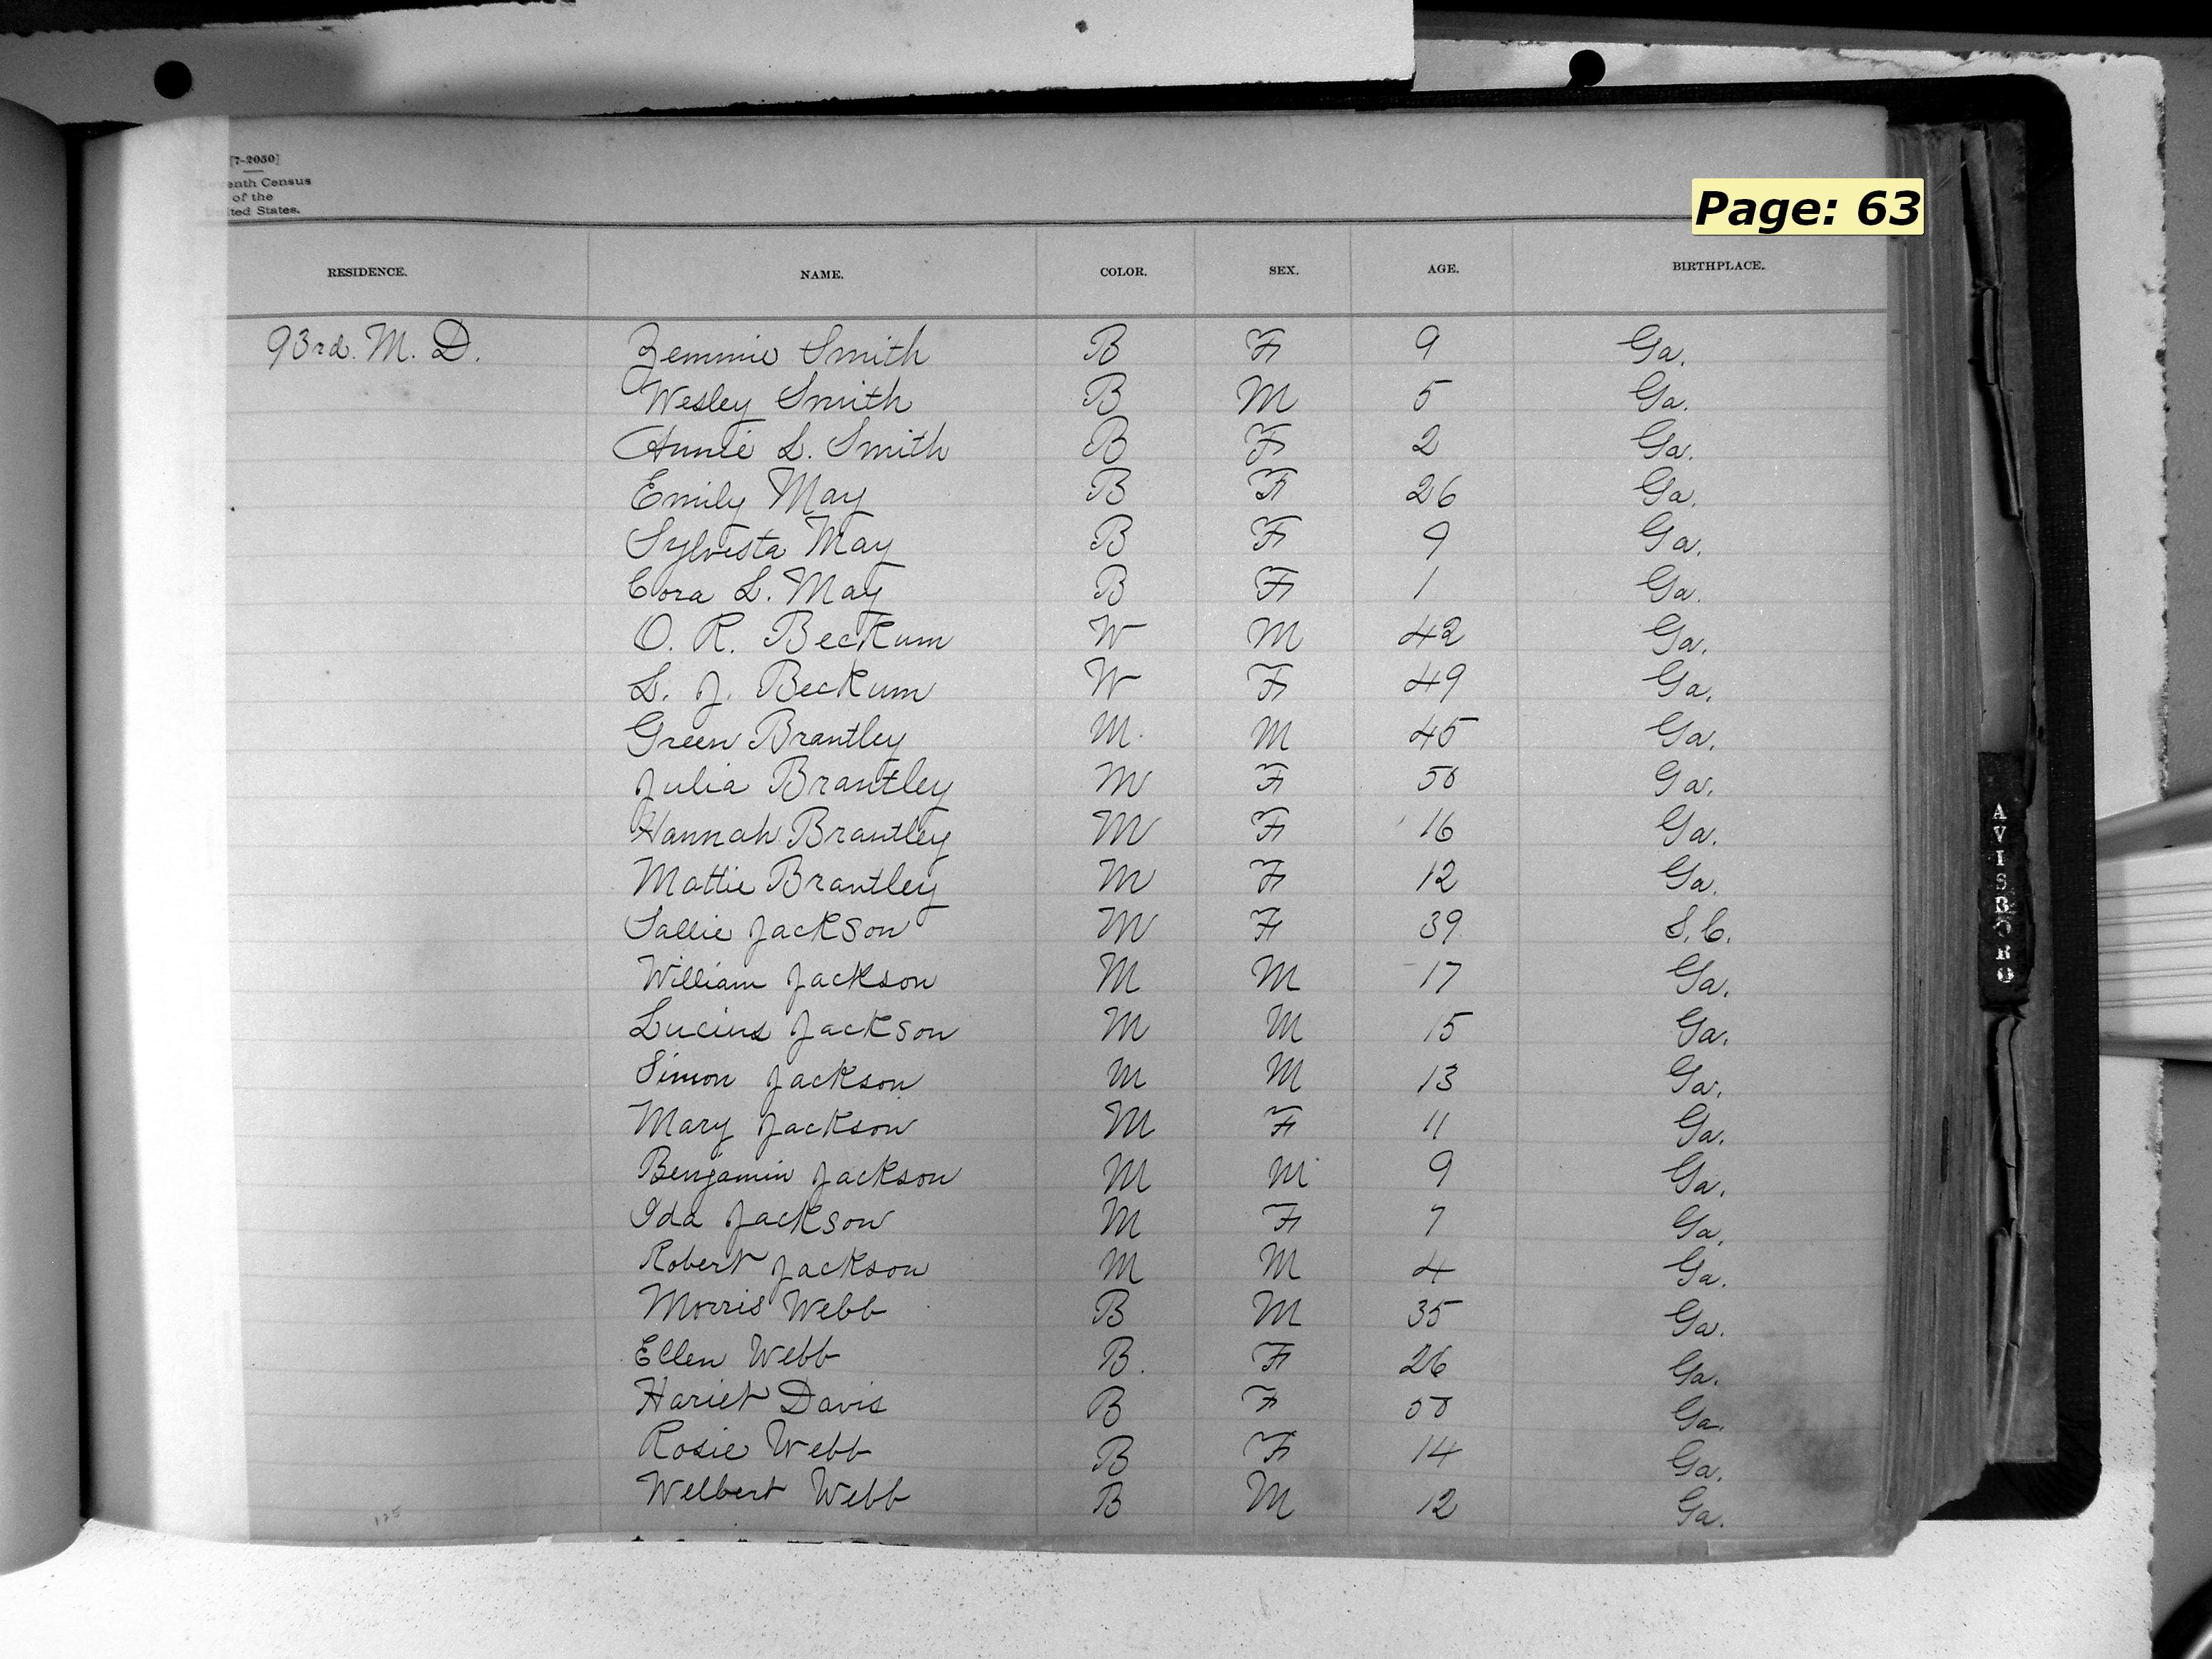 [7-2050]
enth Census
of the
ited States.
Page: 63
RESIDENCE. NAME. COLOR. SEX. AGE. BIRTHPLACE.
93rd. M. D. Zemmie Smith B F 9 Ga.
Wesley Smith B M 5 Ga.
Annie L. Smith B F 2 Ga.
Emily May B F 26 Ga.
Sylvesta May B F 9 Ga.
Cora L. May B F 1 Ga.
O. R. Beckum W M 42 Ga.
L. J. Beckum W F 49 Ga.
Green Brantley M. M 45 Ga.
Julia Brantley M F 50 Ga.
Hannah Brantley M F 16 Ga.
Mattie Brantley M F 12 Ga.
Sallie Jackson M F 39 S.C.
William Jackson M M 17 Ga.
Lucius Jackson M M 15 Ga.
Simon Jackson M M 13 Ga.
Mary Jackson M F 11 Ga.
Benjamin Jackson M M 9 Ga.
Ida Jackson M F 7 Ga.
Robert Jackson M M 4 Ga.
Morris Webb B M 35 Ga.
Ellen Webb B. F 26 Ga.
Hariet Davis B F Ga.
Rosie Webb B F 14 Ga.
Welbert Webb B M 12 Ga.
AVISBORO